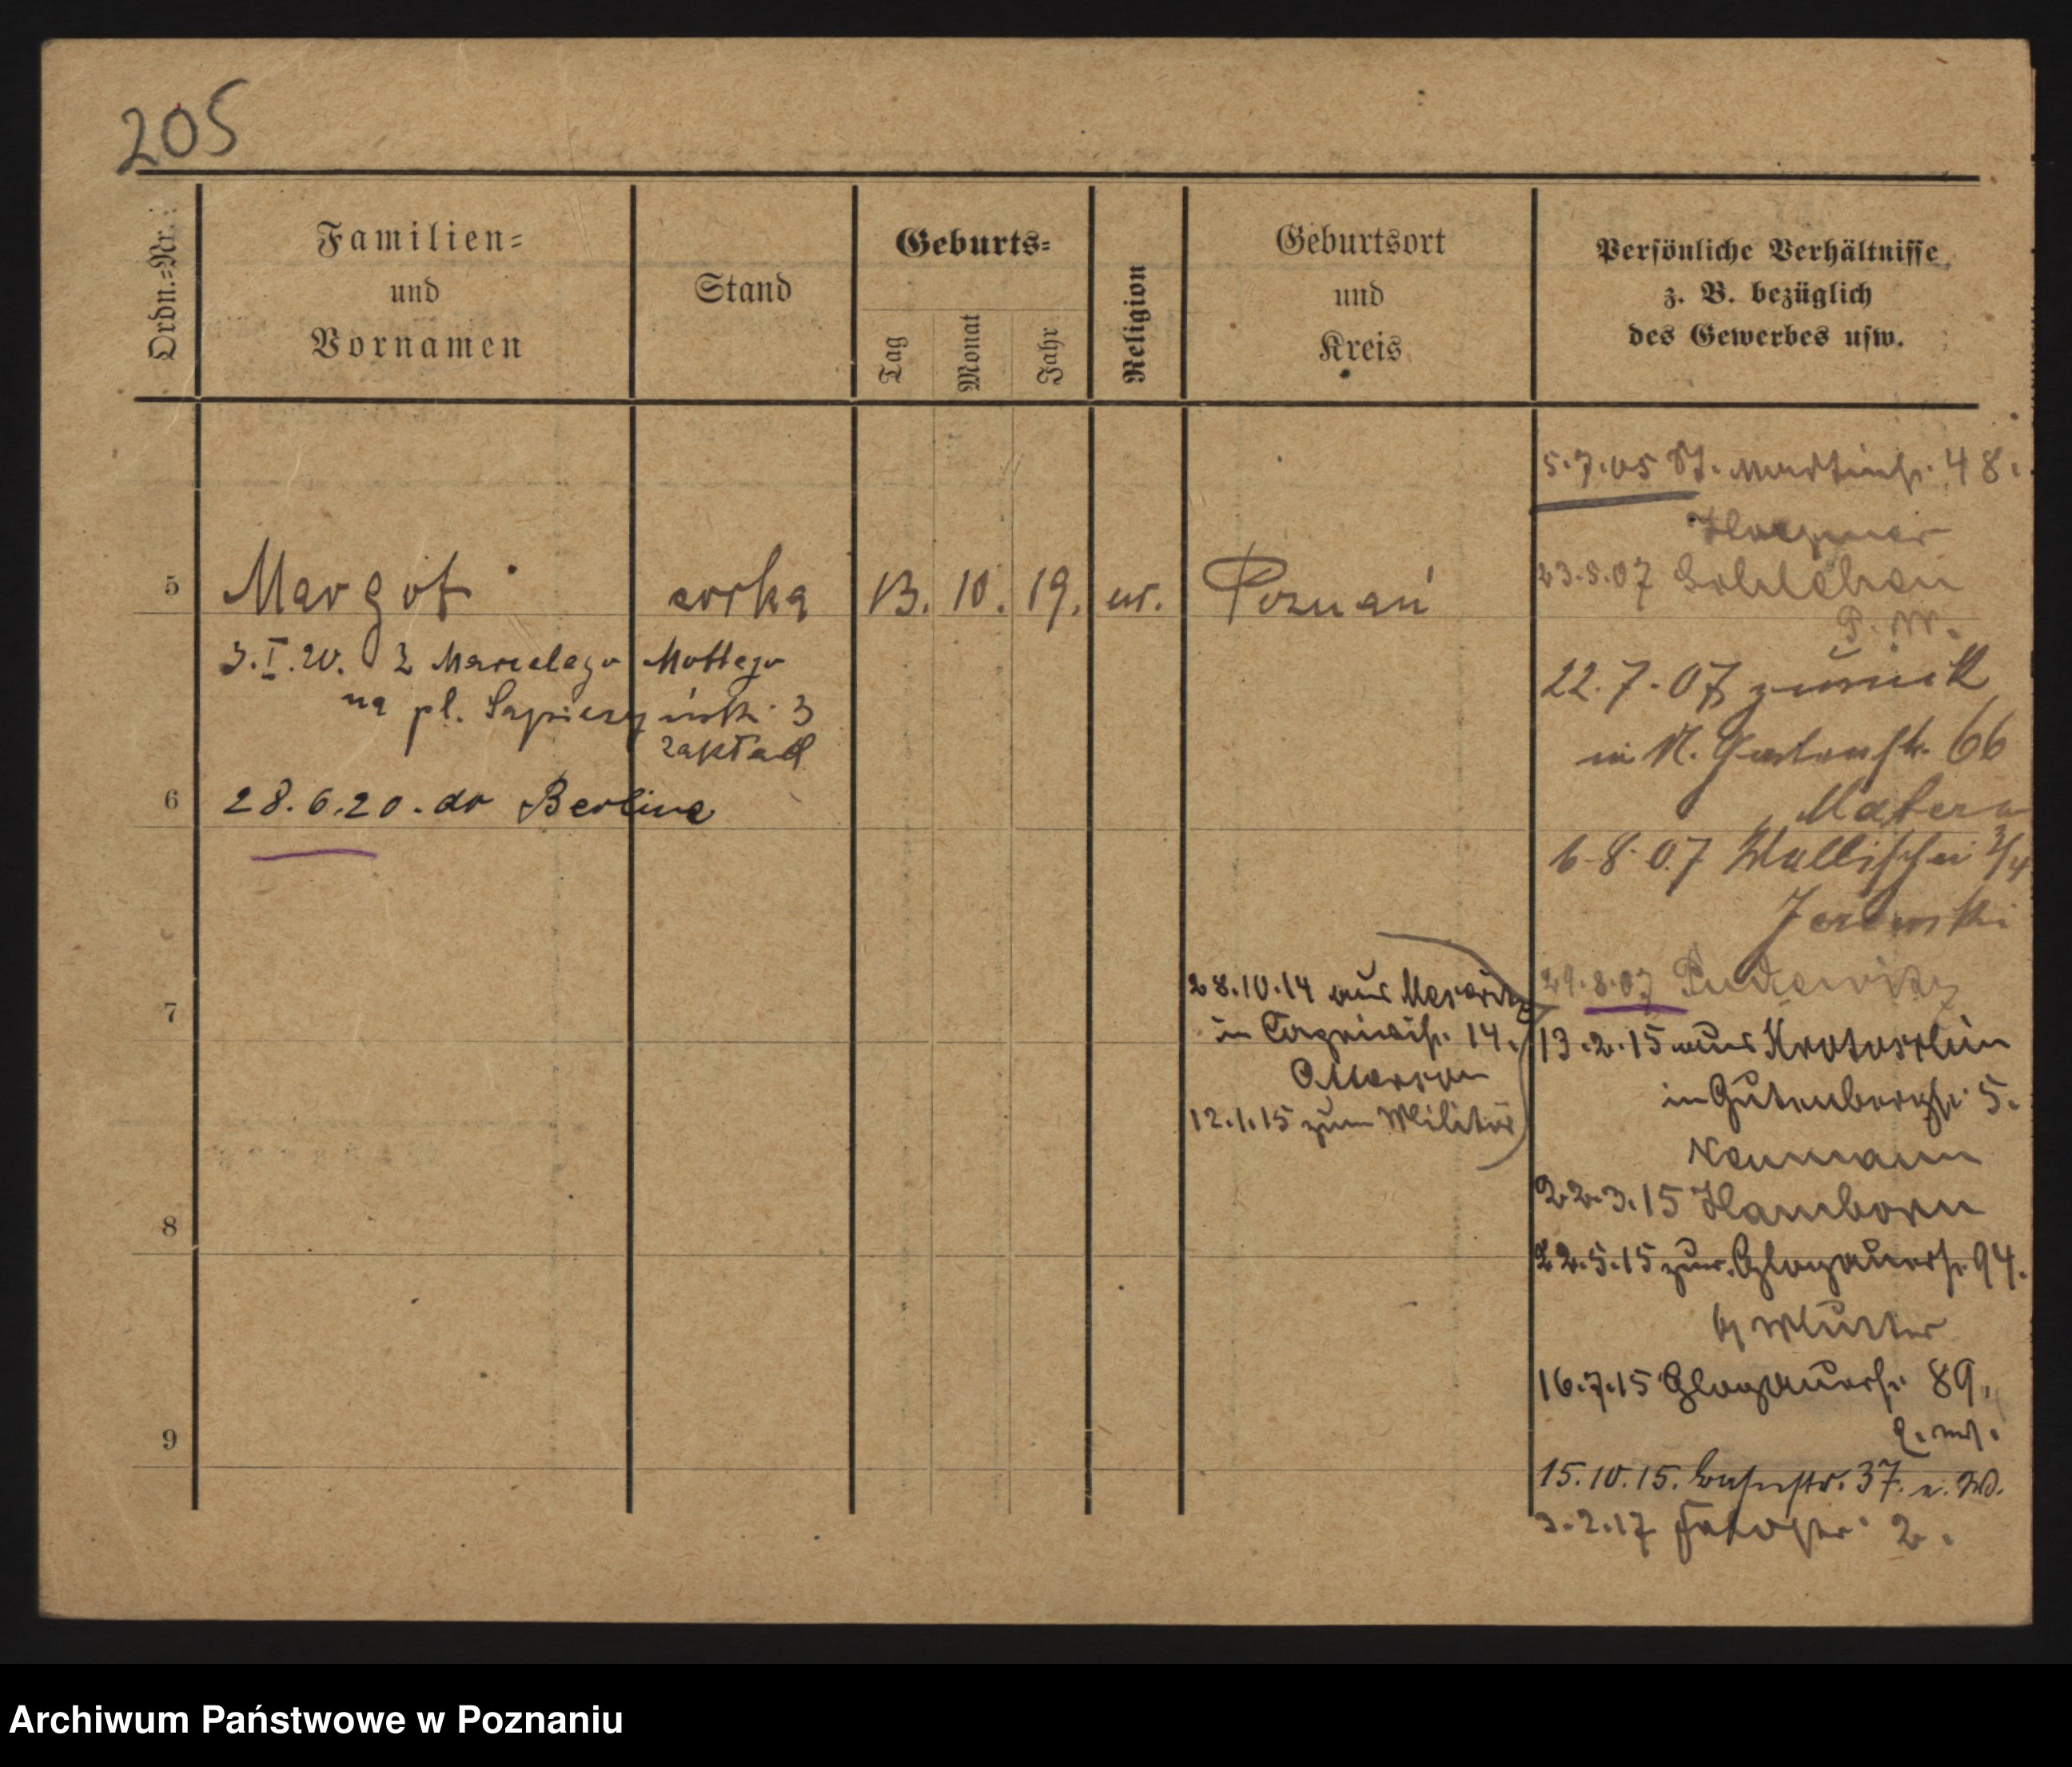 205
Ordn.=Nr.
Familien=
und
Vornamen
Stand
Geburts=
Tag
Monat
Jahr
Religion
Geburtsort
und
Kreis
Persönliche Verhältnisse
z. B. bezüglich
des Gewerbes usw.
5.7.05 St. Martinstr. 48.
5 Margot córka 13. 10. 19. ew. Poznań
23.5.07
P. W.
3.I.20. z Marcelego Mottego
na pl. Sapieżyński 3
zakład
22.7.07 zurück
in N. Gartenstr. 66
Matera
6 28.6.20. do Berlina
6.8.07 Wallischei 3/4
29.8.07 Pudewitz
7
28.10.14 aus Meseritz
in 14.
12.1.15 zum Militär
13.2.15 aus Krotoschin
in Gutenbergstr. 5.
Neumann
22.3.15 Hamborn
8
22.5.15 zur. Glogauerstr. 94.
b/ Mutter
16.7.15 Glogauerstr. 89.
9
15.10.15. 37. e. W.
3.2.17 2.
Archiwum Państwowe w Poznaniu